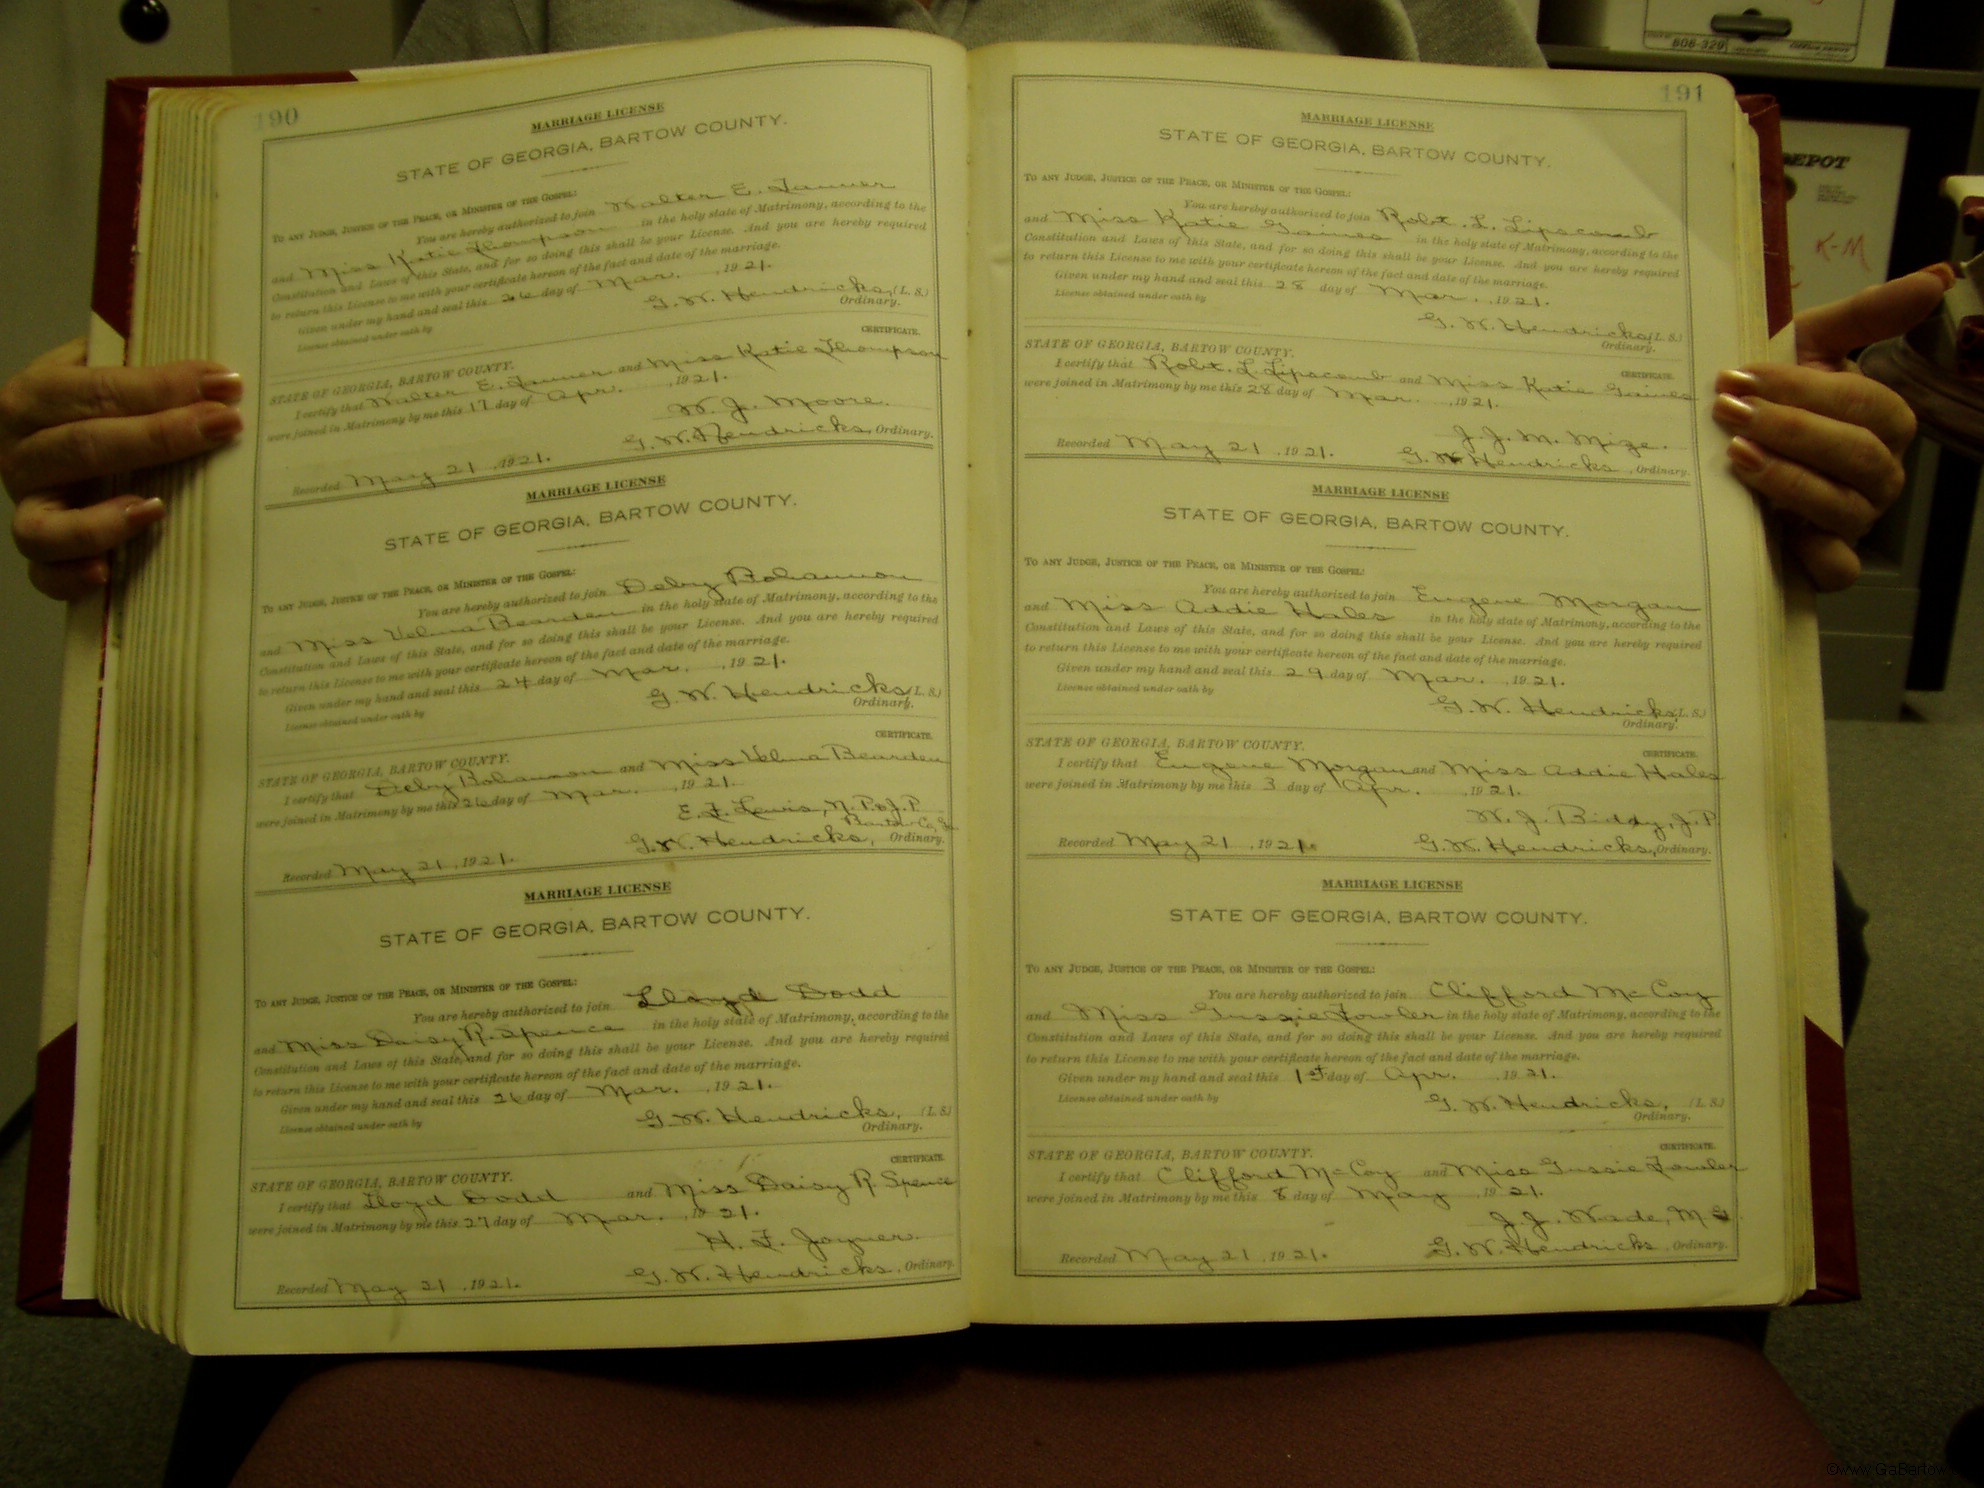 190
MARRIAGE LICENSE
STATE OF GEORGIA, BARTOW COUNTY.
TO ANY JUDGE, JUSTICE OF THE PEACE, OR MINISTER OF THE GOSPEL:
You are hereby authorized to join Walter E. Tanner
and Miss Katie Thompson in the holy state of Matrimony, according to the
Constitution and Laws of this State, and for so doing this shall be your License. And you are hereby required
to return this License to me with your certificate hereon of the fact and date of the marriage.
Given under my hand and seal this 26 day of Mar. , 1921.
License obtained under oath by
G. W. Hendricks, (L. S.)
Ordinary.
CERTIFICATE.
STATE OF GEORGIA, BARTOW COUNTY.
I certify that Walter E. Tanner and Miss Katie Thompson
were joined in Matrimony by me this 17 day of Apr. , 1921.
W. J. Moore.
Recorded May 21 , 1921. G. W. Hendricks, Ordinary.
MARRIAGE LICENSE
STATE OF GEORGIA, BARTOW COUNTY.
TO ANY JUDGE, JUSTICE OF THE PEACE, OR MINISTER OF THE GOSPEL:
You are hereby authorized to join Debry Bohannon
and Miss Velma Bearden in the holy state of Matrimony, according to the
Constitution and Laws of this State, and for so doing this shall be your License. And you are hereby required
to return this License to me with your certificate hereon of the fact and date of the marriage.
Given under my hand and seal this 24 day of Mar. , 1921.
License obtained under oath by
G. W. Hendricks (L. S.)
Ordinary.
CERTIFICATE.
STATE OF GEORGIA, BARTOW COUNTY.
I certify that Debry Bohannon and Miss Velma Bearden
were joined in Matrimony by me this 26 day of Mar. , 1921.
E. F. Lewis, N. P. & J. P.
Bartow Co, Ga.
Recorded May 21 , 1921. G. W. Hendricks, Ordinary.
MARRIAGE LICENSE
STATE OF GEORGIA, BARTOW COUNTY.
TO ANY JUDGE, JUSTICE OF THE PEACE, OR MINISTER OF THE GOSPEL:
You are hereby authorized to join Lloyd Dodd
and Miss Daisy R. Spence in the holy state of Matrimony, according to the
Constitution and Laws of this State, and for so doing this shall be your License. And you are hereby required
to return this License to me with your certificate hereon of the fact and date of the marriage.
Given under my hand and seal this 26 day of Mar. , 1921.
License obtained under oath by
G. W. Hendricks, (L. S.)
Ordinary.
CERTIFICATE.
STATE OF GEORGIA, BARTOW COUNTY.
I certify that Lloyd Dodd and Miss Daisy R. Spence
were joined in Matrimony by me this 27 day of Mar. , 1921.
H. F. Joyner.
Recorded May 21 , 1921. G. W. Hendricks, Ordinary.
191
MARRIAGE LICENSE
STATE OF GEORGIA, BARTOW COUNTY.
TO ANY JUDGE, JUSTICE OF THE PEACE, OR MINISTER OF THE GOSPEL:
You are hereby authorized to join Robt. L. Lipscomb
and Miss Katie Gaines in the holy state of Matrimony, according to the
Constitution and Laws of this State, and for so doing this shall be your License. And you are hereby required
to return this License to me with your certificate hereon of the fact and date of the marriage.
Given under my hand and seal this 28 day of Mar. , 1921.
License obtained under oath by
G. W. Hendricks, (L. S.)
Ordinary.
STATE OF GEORGIA, BARTOW COUNTY.
CERTIFICATE.
I certify that Robt. L. Lipscomb and Miss Katie Gaines
were joined in Matrimony by me this 28 day of Mar. , 1921.
J. J. M. Mize.
Recorded May 21 , 1921. G. W. Hendricks , Ordinary.
MARRIAGE LICENSE
STATE OF GEORGIA, BARTOW COUNTY.
TO ANY JUDGE, JUSTICE OF THE PEACE, OR MINISTER OF THE GOSPEL:
You are hereby authorized to join Eugene Morgan
and Miss Addie Hales in the holy state of Matrimony, according to the
Constitution and Laws of this State, and for so doing this shall be your License. And you are hereby required
to return this License to me with your certificate hereon of the fact and date of the marriage.
Given under my hand and seal this 29 day of Mar. , 1921.
License obtained under oath by
G. W. Hendricks, (L. S.)
Ordinary.
STATE OF GEORGIA, BARTOW COUNTY.
CERTIFICATE.
I certify that Eugene Morgan and Miss Addie Hales
were joined in Matrimony by me this 3 day of Apr. , 1921.
W. J. Biddy, J. P.
Recorded May 21 , 1921. G. W. Hendricks, Ordinary.
MARRIAGE LICENSE
STATE OF GEORGIA, BARTOW COUNTY.
TO ANY JUDGE, JUSTICE OF THE PEACE, OR MINISTER OF THE GOSPEL:
You are hereby authorized to join Clifford McCoy
and Miss Gussie Fowler in the holy state of Matrimony, according to the
Constitution and Laws of this State, and for so doing this shall be your License. And you are hereby required
to return this License to me with your certificate hereon of the fact and date of the marriage.
Given under my hand and seal this 1st day of Apr. , 1921.
License obtained under oath by
G. W. Hendricks, (L. S.)
Ordinary.
CERTIFICATE.
STATE OF GEORGIA, BARTOW COUNTY.
I certify that Clifford McCoy and Miss Gussie Fowler
were joined in Matrimony by me this 8 day of May , 1921.
J. J. Wade, M. G.
Recorded May 21 , 1921. G. W. Hendricks , Ordinary.
606-329
DEPOT
K-M
©www.GaBartow